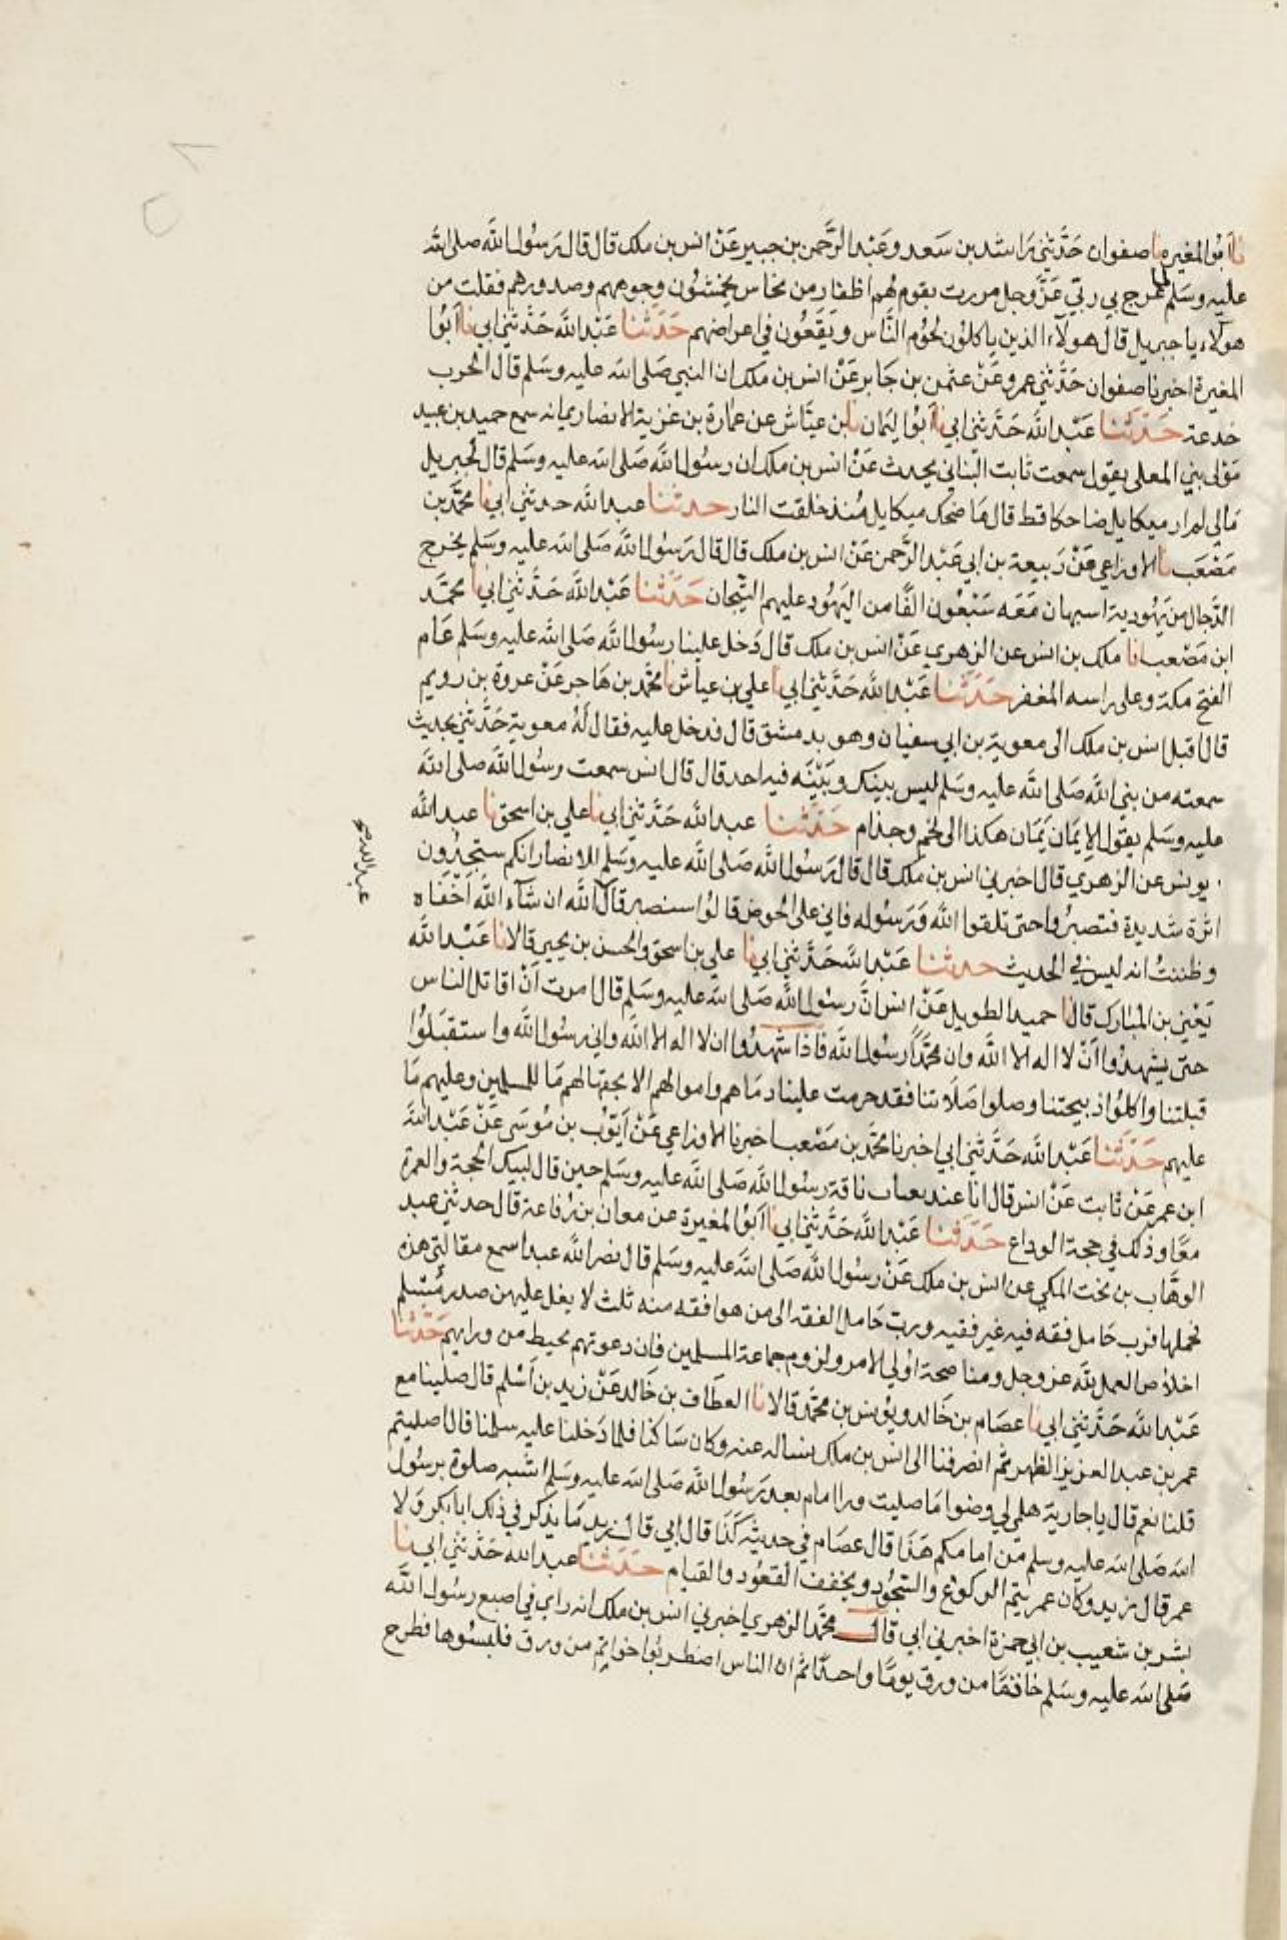 نا ابُوا المغيره نا صفوان حَدَّثني رَاشد بن سَعد وعَبْد الرَّحمن بن جبير عَنْ انس بن ملك قال قال رَسُول الله صلى الله
عليه وسَلم لما عرج بي ربّي عَزَّ وجل مررت بقوم لهُم اظفار من نحاس يخمشُون وجوههم وصدورهم فقلت من
هولاء يا جبريل قال هولآء الذين ياكلوُن لحُوُم النَّاس ويَقَعُون في اعراضهم حَدَّثنا عَبْد الله حَدَّثني ابي نا ابُوا
المغيرة اخبرنا صفوان حَدَّثني عمرو عَنْ عثمن بن جَابر عَنْ انس بن ملك ان النبي صَلى الله عليه وسَلم قال الحرب
خدعة حَدَّثنا عَبْد الله حَدَّثني ابي نا ابُوا ليَمان نا بن عيَّاش عن عمَارة بن غزية الانصاري انه سمع حميد بن عبيد
مَوْلى بني المعلى يقول سمعت ثابت البناني يحدث عَنْ انس بن ملك ان رسول الله صَلى الله عليه وسَلم قال لجبريل
مَالي لم ار ميكايل ضاحكا قط قال مَا ضحك ميكايل مُنذ خلقت النار حدثنا عبد الله حدثني ابي نا محمَّد بن
مَصْعَب نا الاوزاعي عَنْ رَبيعة بن ابي عَبْد الرَّحمن عَنْ انس بن ملك قال قال رَسُول الله صَلى الله عليه وسَلم يخرج
الدَّجال من يَهُودية اسبهان مَعَه سَبْعُون الفًا من اليَهُود عليهم التيجان حَدَّثنا عَبْد الله حَدَّثني ابي نا محمَّد
ابن مَصْعب نا ملك بن انس عن الزهري عَنْ انس بن ملك قال دَخل علينا رسُول الله صَلى الله عليه وسَلم عَام
الفتح مكة وعلى راسه المغفر حَدَّثنا عَبْد الله حَدَّثني ابي نا علي بن عياش نا محمَّد بن مهَاجر عَنْ عروة بن رويم
قال اقبل انس بن ملك الى معوية بن ابي سفيان وهو بدمشق قال فدخل عليه فقال لهُ معوية حَدَّثني بحديث
سمعته من بني الله صَلى الله عليه وسَلم ليس بينك وبَيْنَه فيه احد قال قال انس سمعت رسُول الله صلى الله
عليه وسَلم يقول الايمَان يَمَان هكذا الى لخم وجذام حَدَّثنا عبد الله حَدَّثني ابي نا علي بن اسحق نا عبد الله
يونس عن الزهري قال اخبرني انس بن ملك قال قال رَسُول الله صَلى الله عليه وسَلم للانصار انكم ستجدُون
اثرة شديدة فتصبرُوا حتى تلقوا الله وَرَسُوله فاني على الحوض قالوُا سنصبر قال الله ان شآء الله اخْفَاه
وظننتُ انه ليس في الحديث حدثنا عَبْد الله حَدَّثني ابي نا علي بن اسحق والحسن بن يحيى قالا نا عَبْد الله
يَعْني بن المبَارك قال نا حميد الطويل عَنْ انس انَّ رسُول الله صَلى الله عليه وسَلم قال امرت انْ اقاتل الناس
حتى يشهدُوا انْ لا اله الا الله وان محمَّدًا رسُول الله فاذا شهدُوا ان لا اله الا الله واني رسُول الله واستقبَلُوا
قبلتنا واكلوُا ذبيحتنا وصلوا صَلَاتنا فقد حرمت علينا دمَاهم واموالهم الا بحقها لهم مَا للمسلمين وعليهم مَا
عليهم حَدَّثنا عَبْد الله حَدَّثني ابي اخبرنا محمَّد بن مَصْعب اخبرنا الاوزاعي عَنْ ايَوُّب بن مُوسَى عَنْ عَبْد الله
ابن عمر عَنْ ثابت عَنْ انس قال انا عند ناقة رسُول الله صَلى الله عليه وسَلم حين قال لبيك الحجة والعمرة
معًا وذلك في حجة الوداع حَدَّثنا عَبْد الله حَدَّثني ابي نا ابَوُا المغيرة عن معان بن رُفاعة قال حدثني عبد
الوهَّاب بن بخت المكي عن انس بن ملك عَنْ رسُول الله صَلى الله عليه وسَلم قال نضر الله عبدا سمع مقالتي هذه
فحملها فرب حَامل فقه فيه غير فقيه ورب حَامل الفقه الى من هو افقه منه ثلث لا يغل عليهن صدر مُسْلم
اخلاص العمل لله عز وجل ومناصحة اوُلي الامر ولزوم جماعة المسلمين فان دعوتهم تحيط من ورايهم حَدَّثنا
عَبْد الله حَدَّثني ابي نا عصَام بن خَالد ويوُنس بن محمَّد قالا نا العطَاف بن خَالد عَنْ زيد بن اَسْلم قال صلينا مع
عمر بن عبد العزيز الظهر ثم انصرفنا الى انس بن ملك نساله عنه وكان شَاكيا فلما دَخلنا عليه سلمنا قال اصليتم
قلنا نعم قال يا جارية هلمي لي وضوا مَا صليت ورا امام بعد رَسُول الله صَلى الله عليه وسَلم اشبه صلوة برسُول
الله صَلى الله عليه وسلم من امامكم هَذَا قال عصَام في حديثه كَذَا قال ابي قال زيد مَا يذكر في ذلك ابابكر وَلا
عمر قال زيد وكَان عمر يتم الركوُع والسجُود ويخفف القعُود والقيام حَدَّثنا عبد الله حَدَّثني ابي نا
بشر بن شعيب بن ابي حمزة اخبرني ابي قال محمَّد الزهري اخبرني انس بن ملك انه راى في اصبع رسُول الله
صَلى الله عليه وسَلم خاتمًا من ورق يومًا واحدًا ثم ان الناس اضطربوُا خواتم من ورق فلبسُوها فطرح